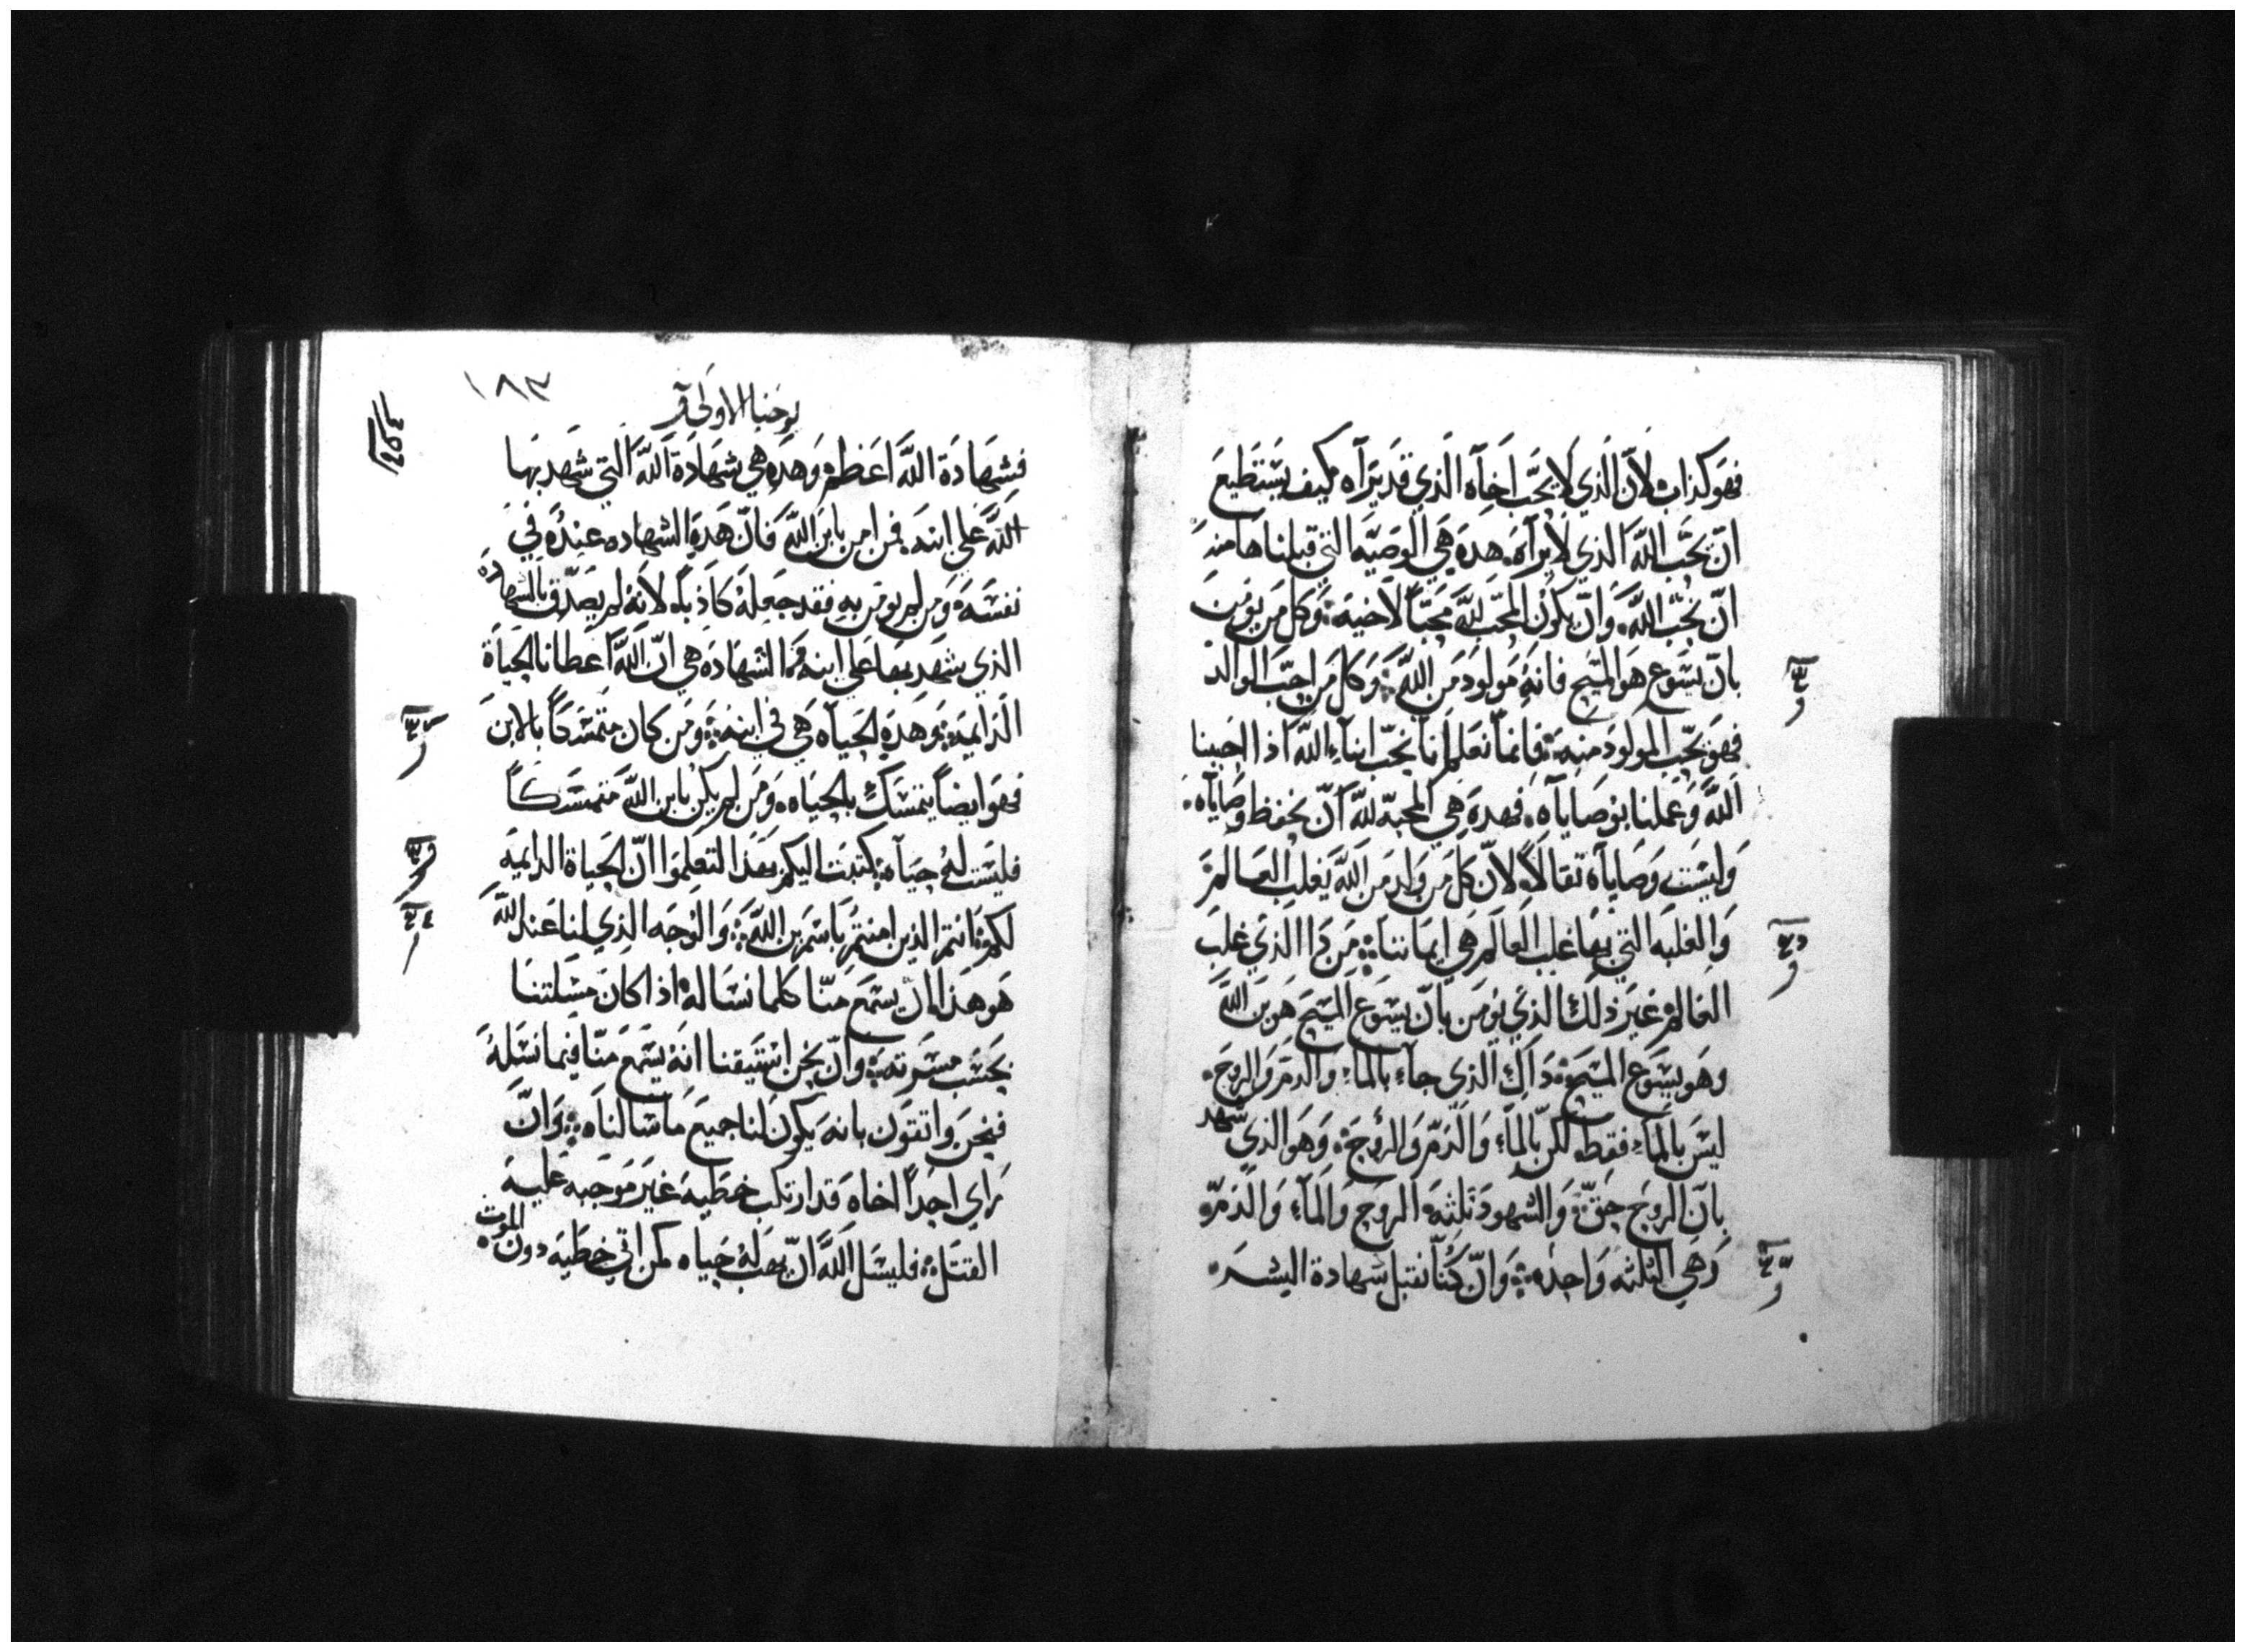 فهو كذاب لانّ الذي لا يحب اخاه الذي قد يراه كيف يستطيع
انّ يحب اللّه الذي لا يراه هده هي الوصيه التي قبلناها منه
انّ نحب اللّه وانّ يكون المحب للّه محبّاً لاخيه وكل من يومن
بانّ يسوع هو المسيح فانه مولود من اللّه وكل من احبّ الوالد
فهو يحبّ المولود منه فانما نعلم انا نحبّ ابناء اللّه اذا احببنا
اللّه وعملنا بوصاياه فهده هي المحبّه للّه انّ نحفظ وصاياه
وليست وصاياه ثقالاً لانّ كل من ولد من اللّه يغلب العالم
والغلبه التي بها غلب العالم هي ايماننا من دا الذي غلب
العالم غير ذلك الذي يومن بانّ يسوع المسيح هو بن اللّه
وهو يسوع المسيح داك الذي جاء بالماء والدم والروح
ليس بالماء فقط لكن بالماء والدمّ والروح وهو الذي شهد
بانّ الروح حقّ والشهود ثلثه الروح والماء والدمّ
وهي الثلثه واحده وانّ كنّا نقبل شهادة البشر
١٨٣
يوحنا الاولى
فشهادة اللّه اعظم وهده هي شهادة اللّه التي شهد بها
اللّه علي ابنه فمن امن بابن اللّه فانّ هده الشهاده عنده في
نفسه ومن لم يومن به فقد جعله كاذباً لانه لم يصدّق بالشهاده
الذي شهد بها علي ابنه والشهاده هي انّ اللّه اعطانا الحياة
الدايمه وهده الحياه هي في ابنه ومن كان متمسكاً بالابن
فهو ايضاً يتمسك بالحياه ومن لم يكن بابن اللّه متمسكاً
فليست له حياه كتبت اليكم بهذا لتعلموا انّ الحياة الدايمه
لكم انتم الذين امنتم باسم بن اللّه والوجه الذي لنا عند اللّه
هو هذا ان يسمع منّا كلما نساله اذا كان مسلتنا
بحسب مسرته وانّ نحن استيقنا انه يسمع منّا فيما نسله
فنحن واثقون بانه يكون لنا جميع ما سالناه وانّ
راي احداً اخاه قد ارتكب خطيه غير موجبه عليه
القتل فليسل اللّه انّ يهب له حياه كمن اتي خطيه دون الموت